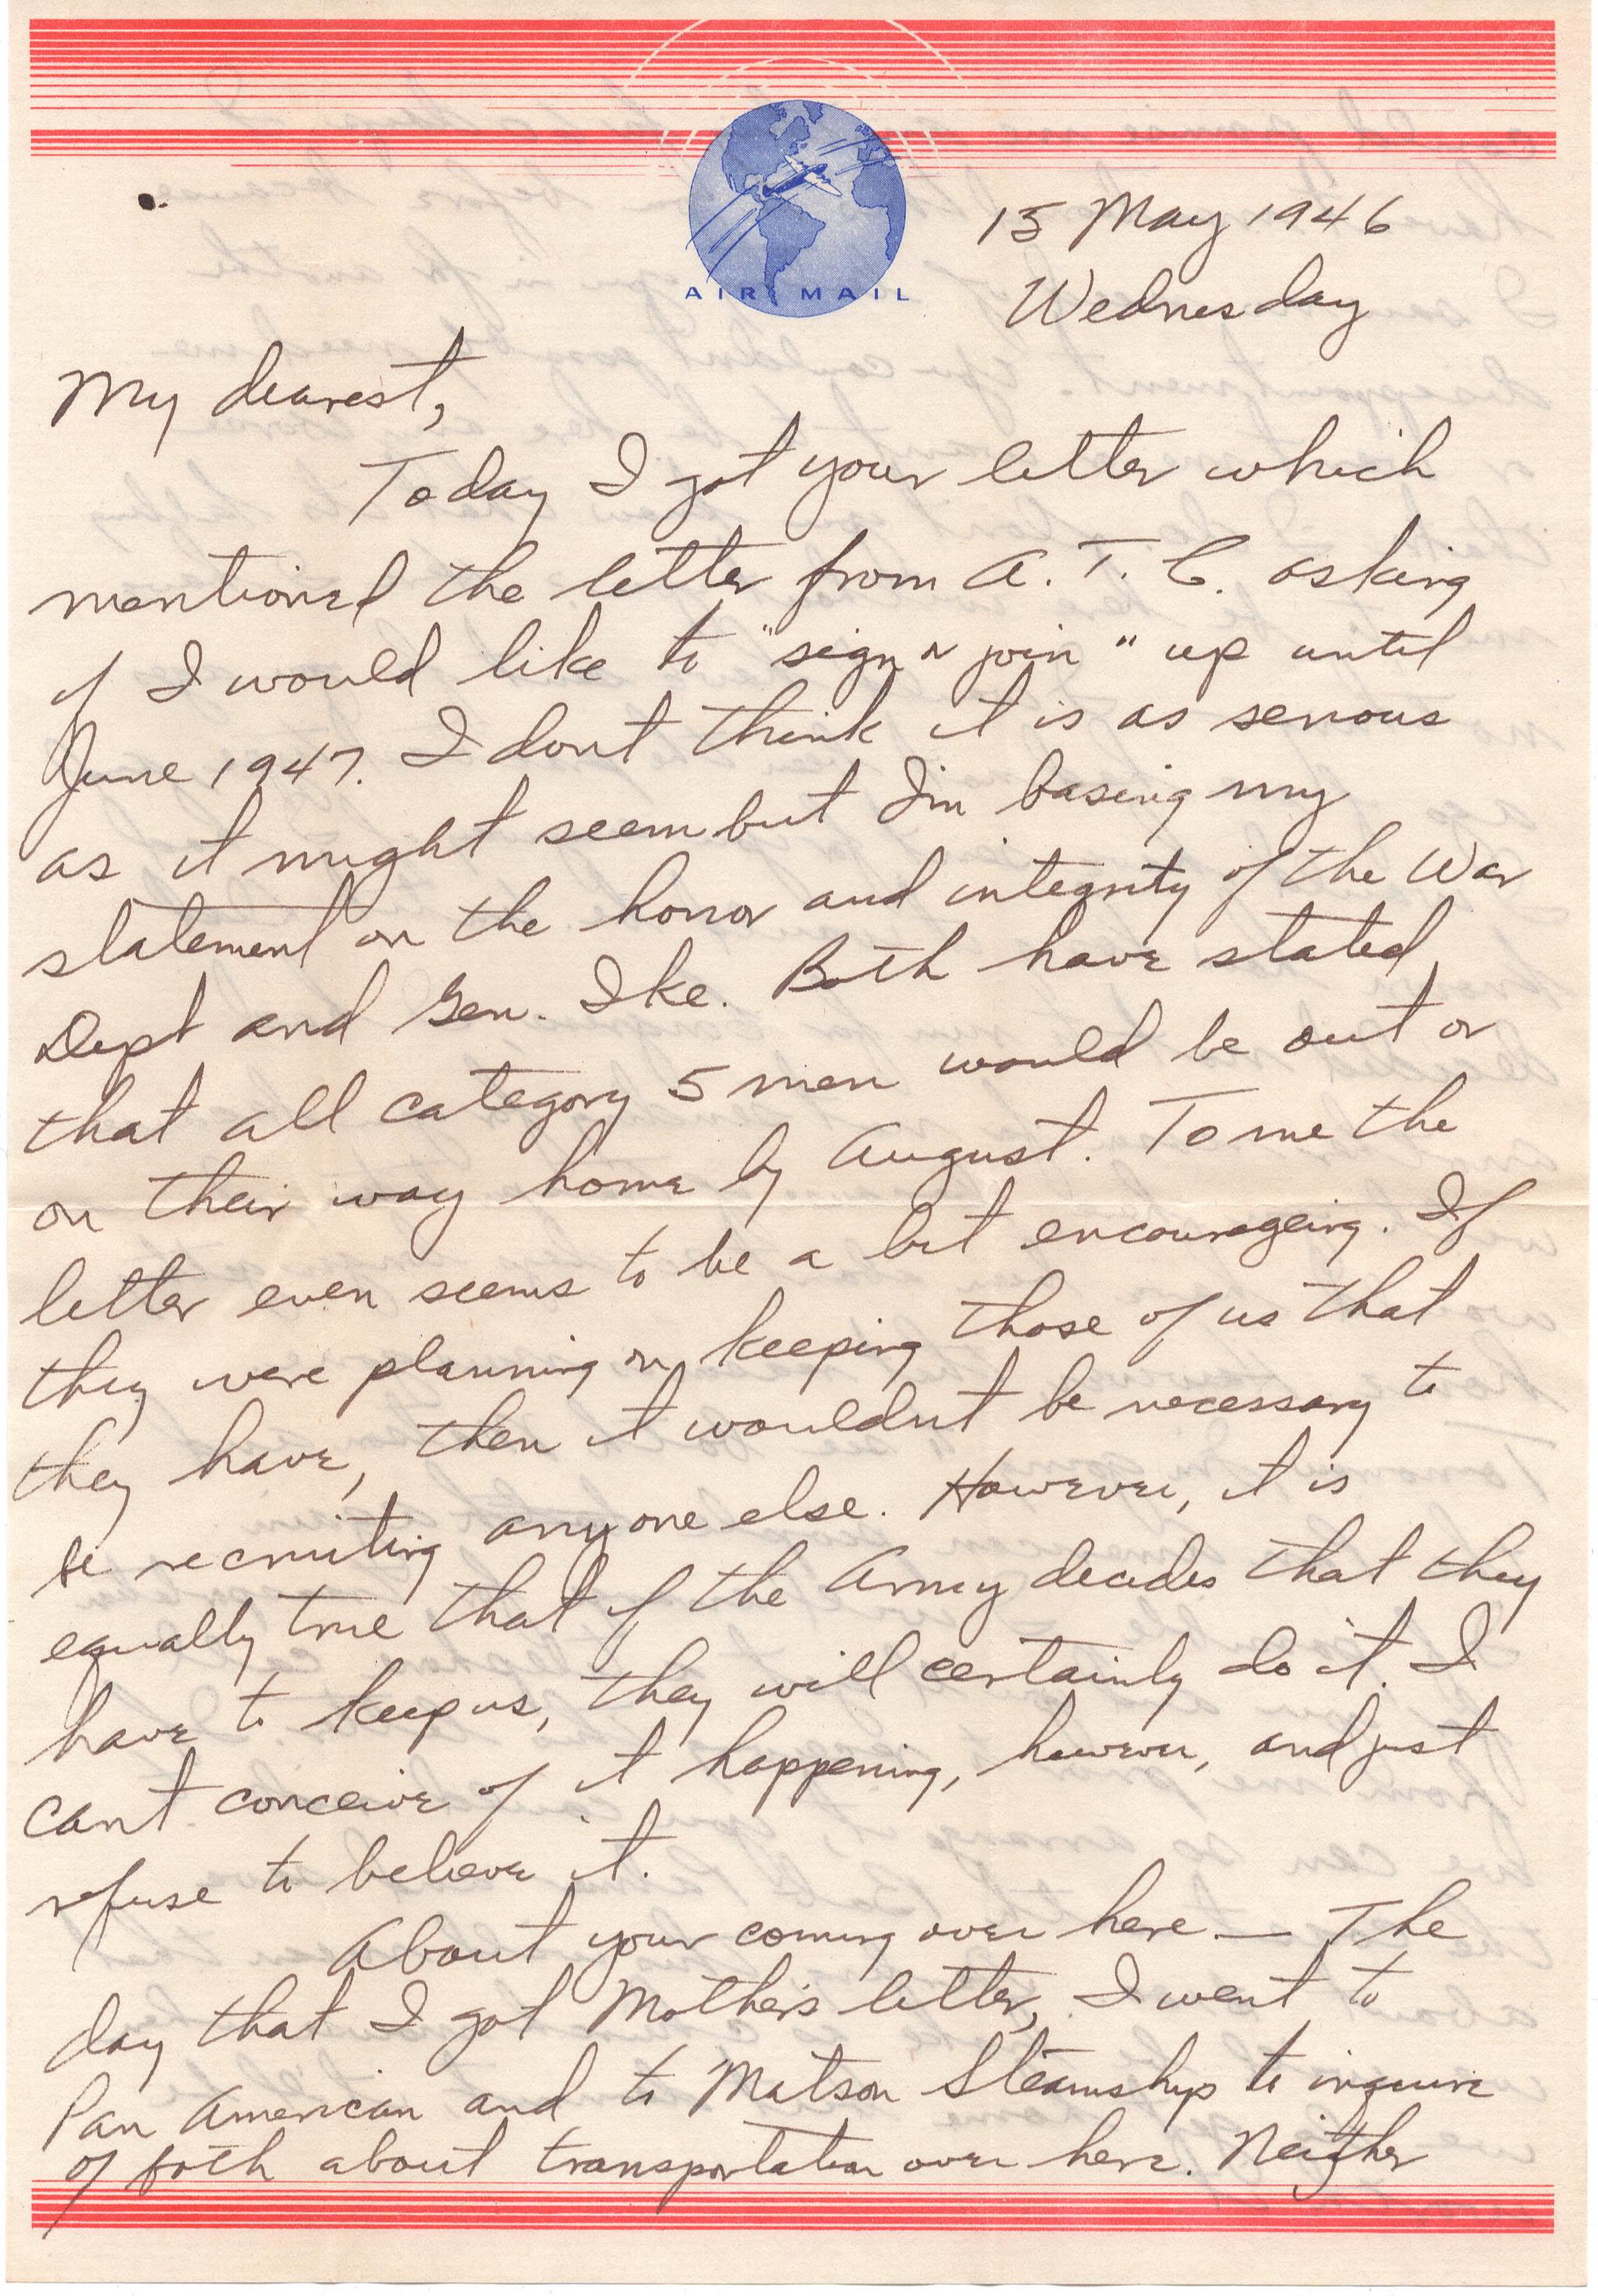 AIR MAIL
15 May 1946
Wednesday
My dearest,
Today I got your letter which
mentioned the letter from A. T. C. asking
if I would like to "sign n join" up until
June 1947. I dont think it is as serious
as it might seem but I'm basing my
statement on the honor and integrity of the War
Dept and Gen. Ike. Both have stated
that all category 5 men would be out or
on their way home by August. To me the
letter even seems to be a bit encourageing. If
they were planning on keeping those of us that
they have, then it wouldn't be necessary to
be recruiting anyone else. However, it is
equally true that if the Army decides that they
have to keep us, they will certainly do it. I
cant conceive of it happening, however, and just
refuse to believe it.
About your coming over here — The
day that I got Mother's letter, I went to
Pan American and to Matson Steamship to inquire
of both about transportation over here. Neither